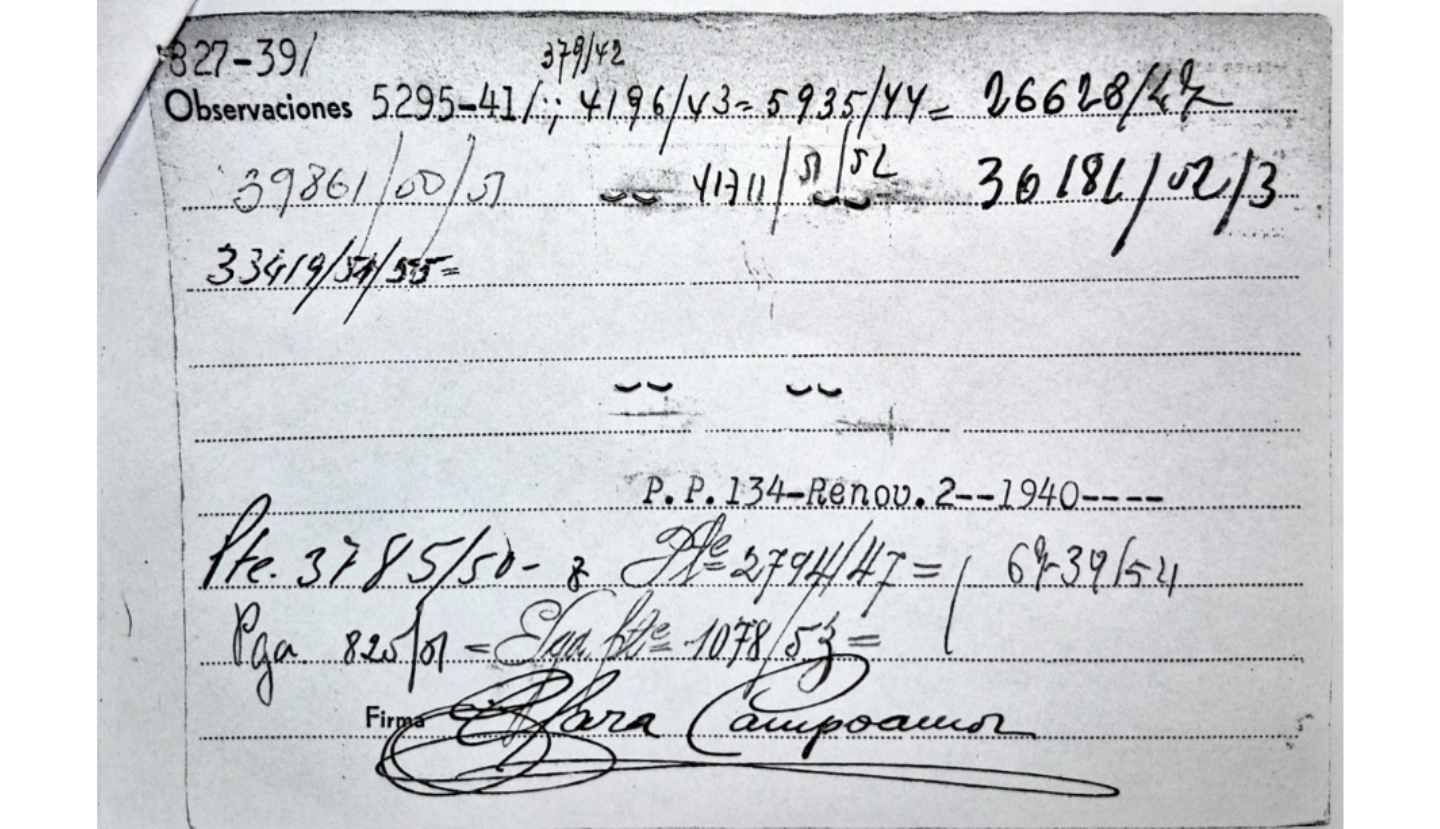 827-39/
379/42
Observaciones 5295-41/;; 4196/43= 5935/44= 26628/47
39861/50/51 41711/51/52 36181/52/3
33419/54/55=
P.P.134-Renov.2--1940----
Pte. 3785/50- Pte= 2794/47=
Pga. 825/51 = pte= 1078/53=
Firma Clara Campoamor